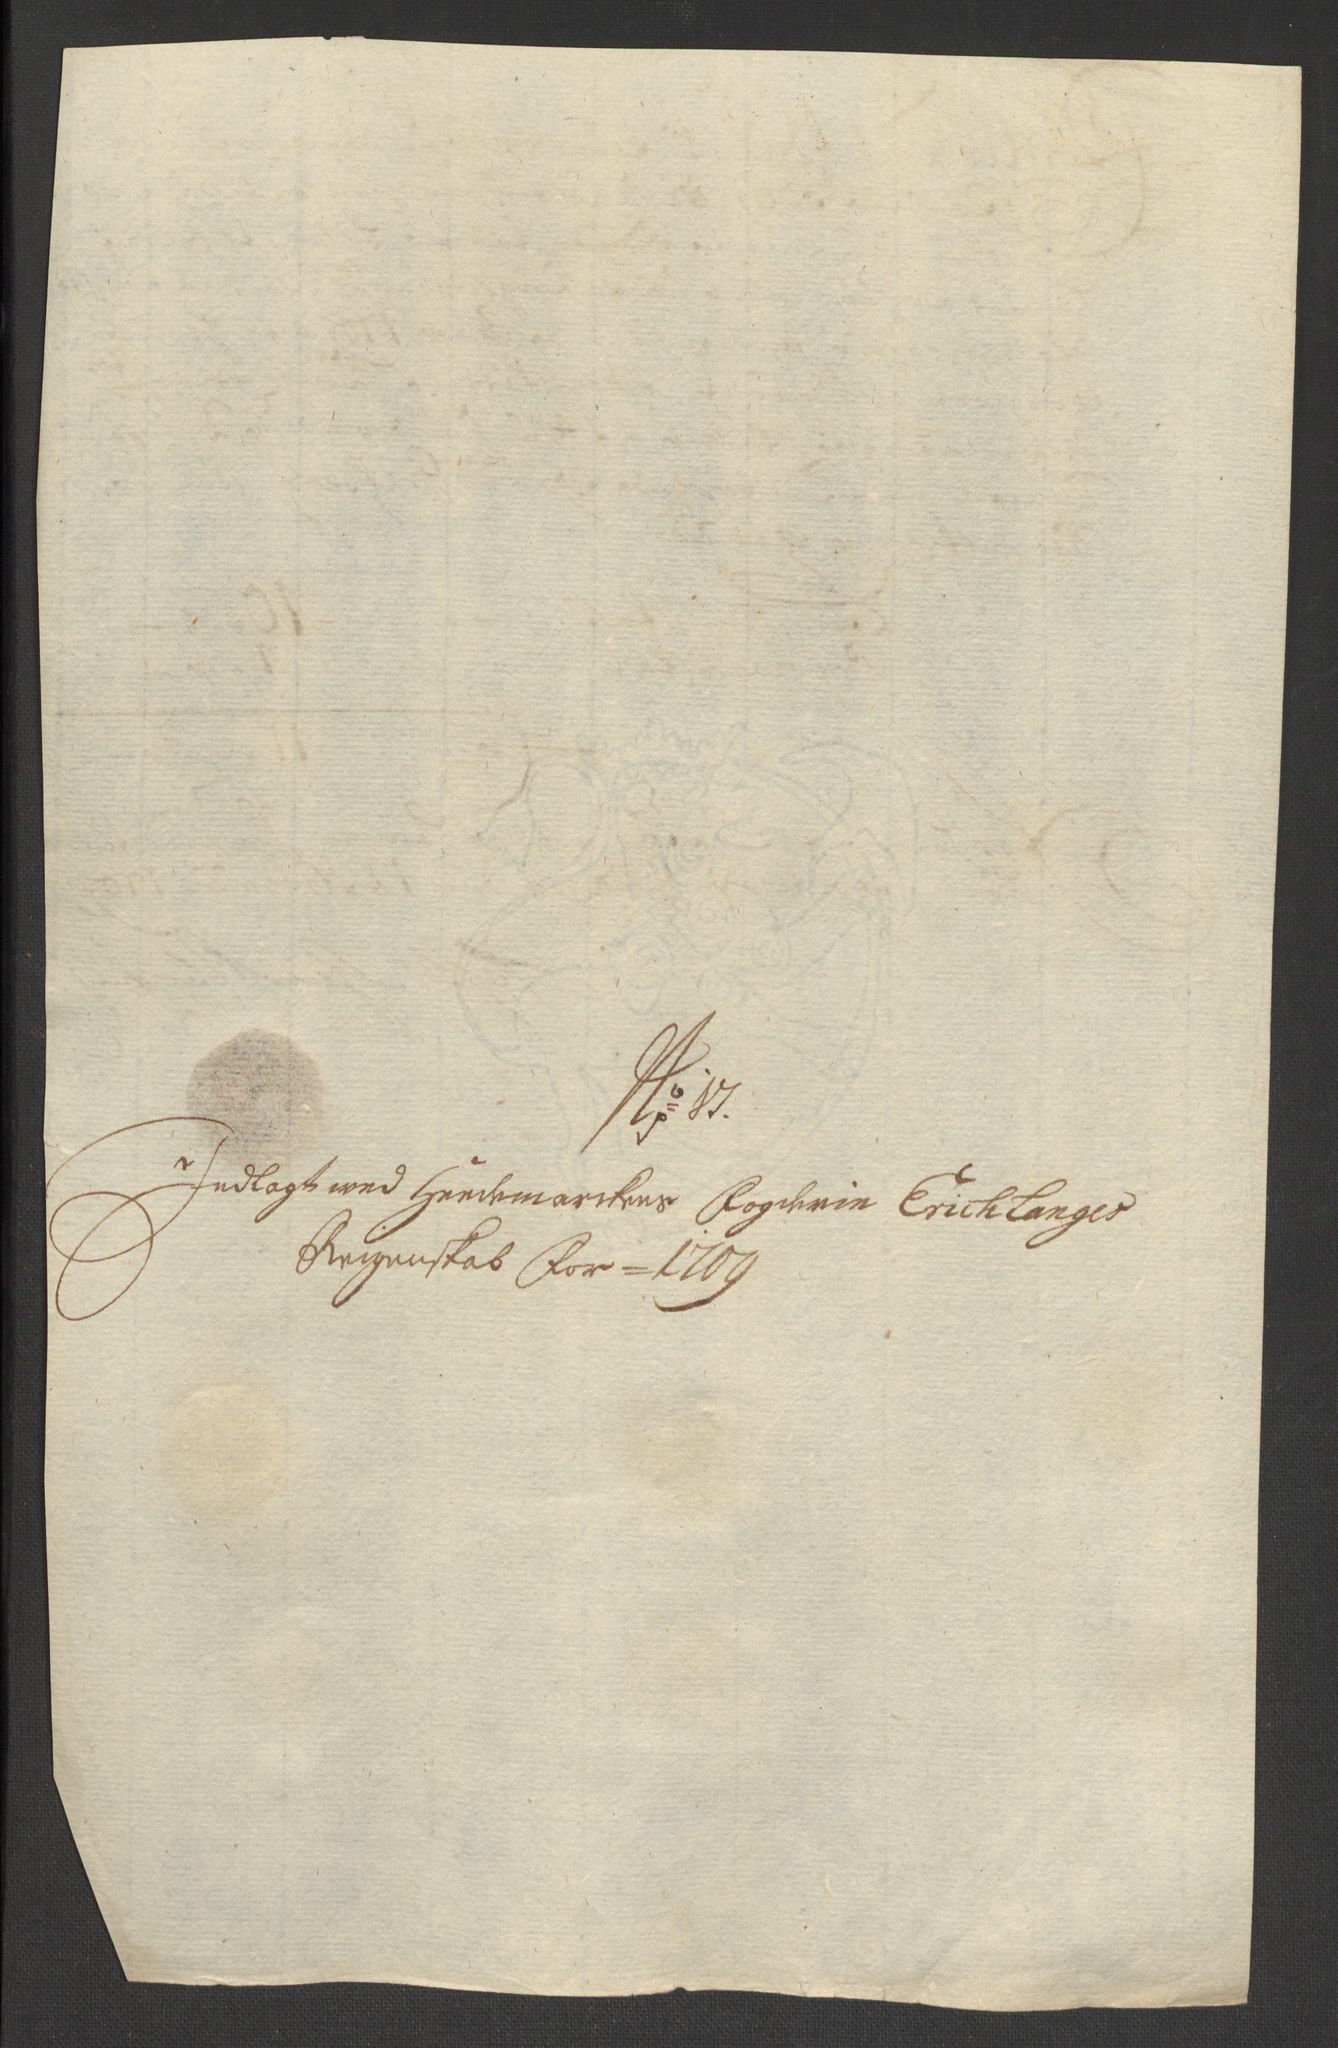 No 17.
Indlagt wed Heedemarckens Fogderie Erich Langes
Regenskab For = 1709